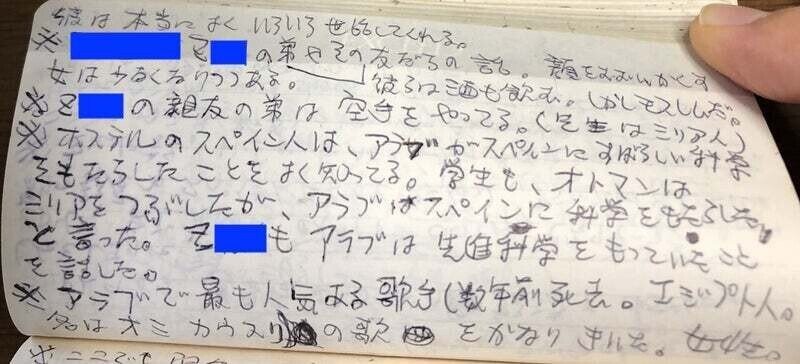 彼は本当によくいろいろ世話してくれる。
※ Z の弟やその友だちの話。顔をおおいかくす
女は少なくなりつつある。 彼らは酒も飲む。しかしモスレムだ。
※ Z の親友の弟は空手をやってる。(先生はシリア人)
※ ホステルのスペイン人は、アラブがスペインにすばらしい科学
をもたらしたことをよく知ってる。学生も、オトマンは
シリアをつぶしたが、アラブはスペインに科学をもたらした
と言った。 Z もアラブは先進科学をもっていたこと
を話した。
※ アラブで最も人気ある歌手(数年前死去。エジプト人。
名はオミカウスリ の歌 をかなりきいた。
※ ここでも